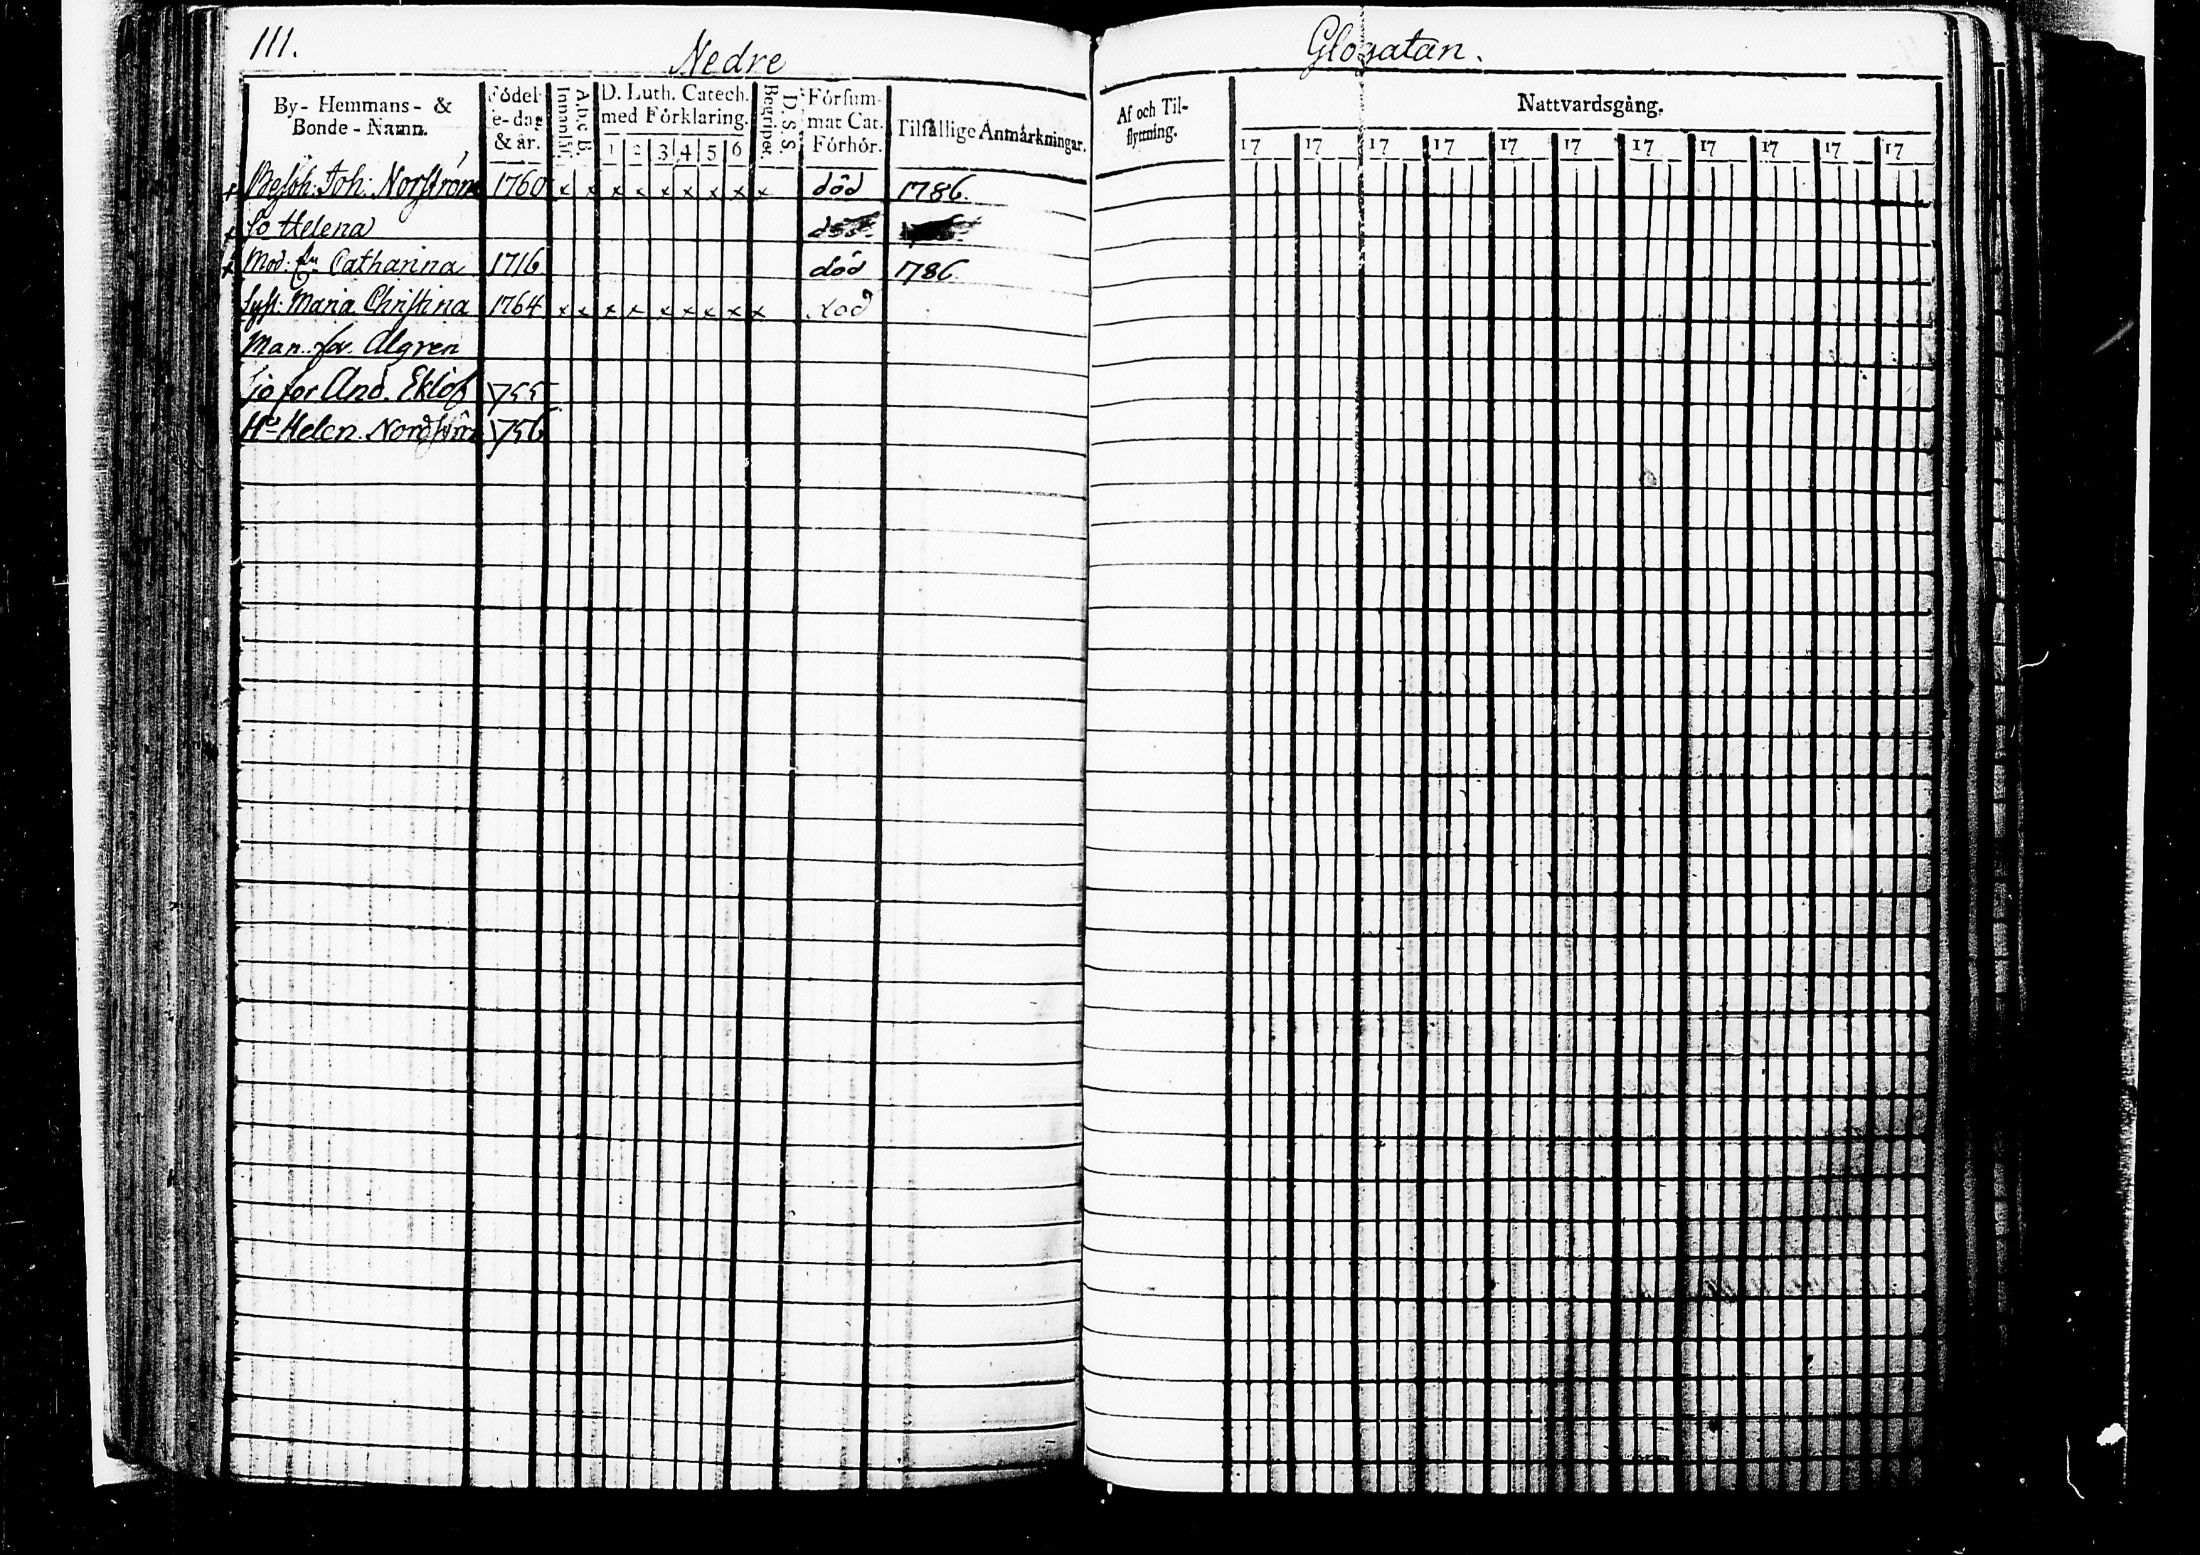 111. Nedre Glogatan.
By- Hemmans- & Bonde-Namn. Födel- e-dag & år. Innanläs. A.b.c B. D. Luth. Catech. med Förklaring. 1 2 3 4 5 6 Begriper. D. S. S. Försum- mat Cat. Förhör. Tilfällige Anmärkningar. Af och Til- flyttning. Nattvardsgång.
17 17 17 17 17 17 17 17 17 17 17
+ Besöh: Joh: Norström 1760 x x x x x x x x x död 1786.
+ So Helena
+ Mod: Catharina 1716 död 1786.
Syst: Maria Christina 1764 x x x x x x x x x
Man. Algren
And. Eklöf 1755
Hu Helen. Nordström 1756